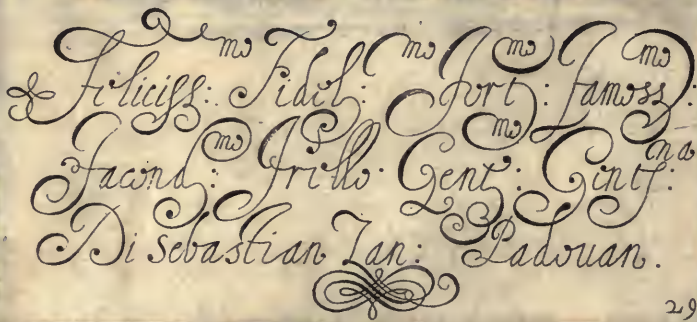 Feliciss:mo Fidel:mo Fort:mo Famoss:mo
Facond:mo Frillo Gent:mo Gintf:na
Di Sebastian Zan: Padouan.
29